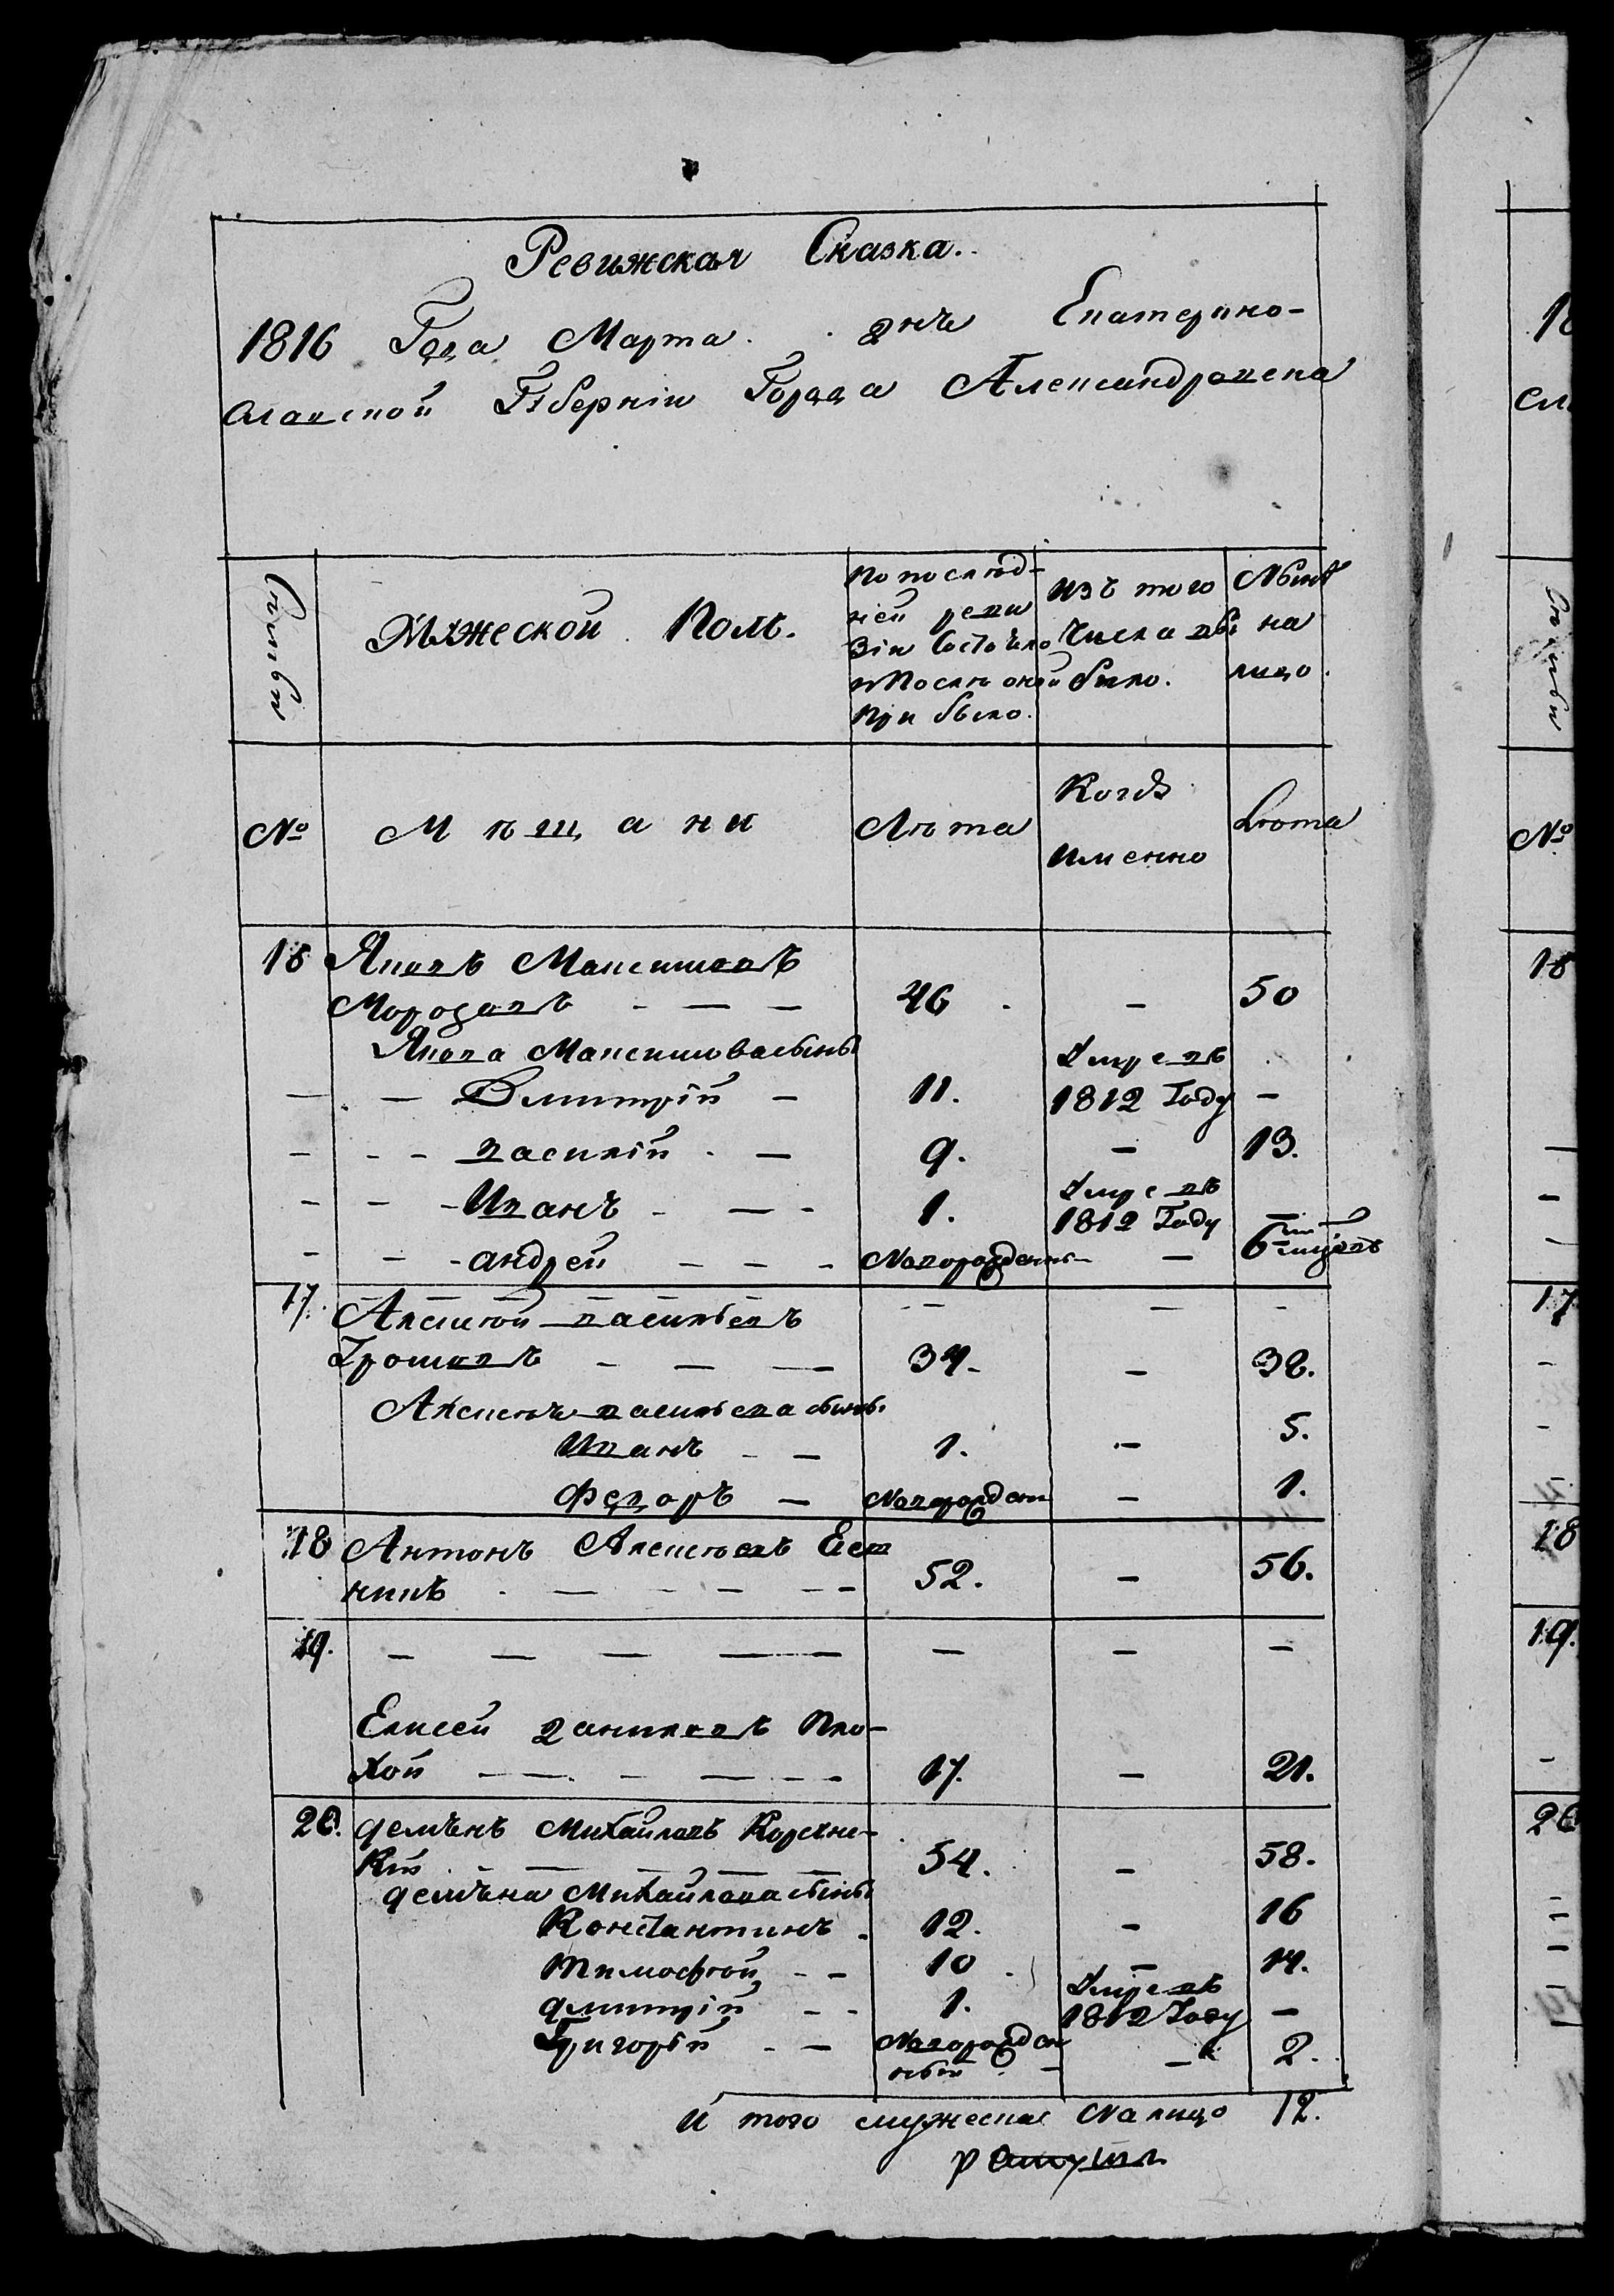 Ревижская Сказка.
1816 Года Марта . . дня Екатерино-
славской Губерніи Города Александровска
Мужеской Полъ.
По послѣд-
ней реви
зіи Состояло
и После оной
при было.
Изъ того
числа вы
было.
Нынѣ
на
лицо.
№
Мѣщани
Лѣта
Когда
именно
Лѣта
16 Яковъ Максимовъ
Морозовъ - — — 46 . - 50
Якова Максимова сыны
— . — Дмитрій - 11. Умре въ 1812 Году -
- - - василій . — 9. - 13.
- - - Иванъ - — - 1. Умре въ 1812 Году —
- - - андрей - - - Новорожденны - 6 ти мцовъ
17. Алексѣй васильевъ - — -
Грошовъ - — — 34 - 38.
Алексѣя васильева сыны
Иванъ - - 1. - 5.
Федоръ — Новорожден - 1.
18 Антонъ Алексѣевъ
52. - 56.
19. - — — — — — - - -
Елисей даниловъ Пло-
хой - — . - — - - 17. - 21.
20. демьянъ Михайловъ Коречне-
Кій . - — - — — 54. - 58.
демьяна Михайлова сыны
Константинъ . 12. - 16
Тимофѣй - - 10 . - 14.
дмитрій - - 1. Умре въ 1812 Году —
Григорій - - Новорожден
ный - - 2.
И того мужеска На лицо 12.
18
17
18
19.
20